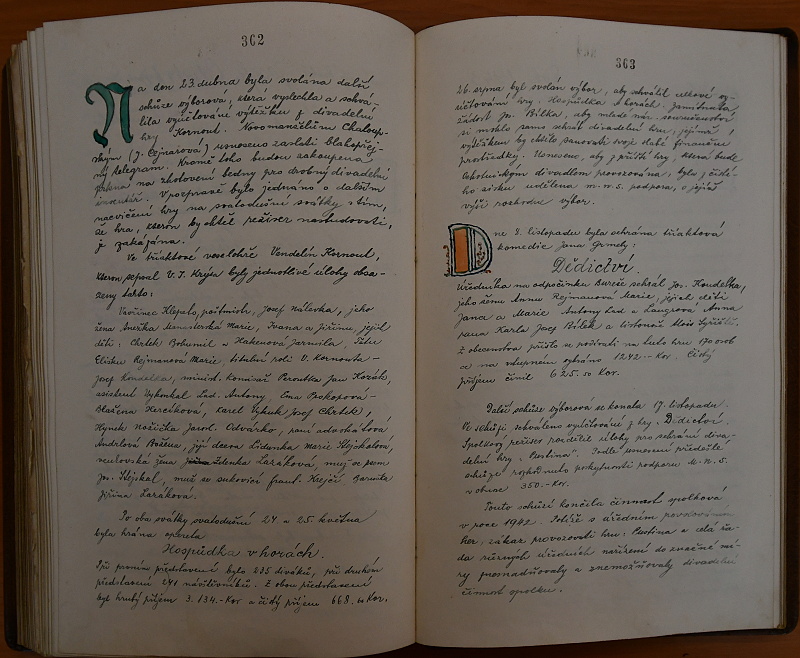 362
Na den 23. dubna byla svolána další
schůze výborová, která vyslechla a schvá-
lila vyúčtování výtěžku z divadelní
hry Kornout. Novomanželům Chaloup-
ským (J. Cejnarova) usneseno zaslati blahopřej-
ný telegram. Kromě toho budou zakoupena
prkna na zhotovení bedny pro drobný divadelní
inventář. V rozpravě bylo jednáno o dalším
nacvičení hry na svatodušní svátky s tím,
že hra, kterou by chtěl režiser nastudovati,
je zakázána.
Ve tříaktové veselohře Vendelín Kornout,
kterou sepsal V. J. Krýsa byly jednotlivé úlohy obsa-
zeny takto:
Vavřinec Klepalo, poštmistr, Josef Nálevka, jeho
žena Anežka Marie, Ivana a Jiřinu, jejich
děti: Chrtek Bohumil a Hakenová Jarmila, Tetu
Elišku Rejmanová Marie, titulní roli V. Kornouta -
Josef Koudelka, minist. komisař Peroutka Jan Kozák,
asistent Vykoukal Lad. Antony, Ema Prokopová -
Blažena Hercíková, Karel Vyhnk Josef Chrtek,
Hynek Nožička Jarosl. Odvárko, paní advokátová
Andrlová Božena, její dcera Lidunka Marie Klejskalová,
venkovská žena Zdenka Lazáková, muž se psem
Jos. Klejskal, muž se sukovicí Frant. Krejčí, Baruška
Jiřina Lazáková.
Po oba svátky svatodušní 24. a 25. května
byla hrána opereta
Hospůdka v horách.
Při prvním představení bylo 235 diváků, při druhém
představení 241 návštěvníků. Z obou představení
byl hrubý příjem 3.134.- Kor a čistý příjem 668.60 Kor.
363
26. srpna byl svolán výbor, aby schválil celkové vy-
účtování hry: Hospůdka v horách. Zamítnuta
žádost Jos. Bílka, aby mladé
si mohlo samo sehrát divadelní hru, jejímž
výtěžkem by chtělo panovati svoje slabé finanční
prostředky. Usneseno, aby z příští hry, která bude
ochotnickým divadlem provozována, byla z čisté-
ho zisku udělena m.n.s. podpora, o jejíž
výši rozhodne výbor.
Dne 8. listopadu byla sehrána tříaktová
komedie Jana Grmely:
Dědictví.
Úředníka na odpočinku Bureše sehrál Jos. Koudelka,
jeho ženu Annu Rejmanová Marie, jejich děti
Jana a Marie Antony Lad a Langrová Anna
pana Karla Josef Bílek a listonoš Alois
Z obecenstva přišlo se podívati na tuto hru 170 osob
a na vstupném vybráno 1242.- Kor. Čistý
příjem činil 625.50 Kor.
Další schůze výborová se konala 17. listopadu.
Ve schůzi schváleno vyúčtování z hry: Dědictví.
Spolkový režiser rozdělil úlohy pro sehrání diva-
delní hry „Pustina". Podle usnesení předešlé
schůze rozhodnuto poskytnouti podporu M.N.S.
v obnose 350.- Kor.
Touto schůzí končila činnost spolková
v roce 1942. Potíže s úředním
her, zákaz provozovati hru: Pustina a celá řa-
da různých úředních nařízení do značné mí-
ry znesnadňovaly a znemožňovaly divadelní
činnost spolku.